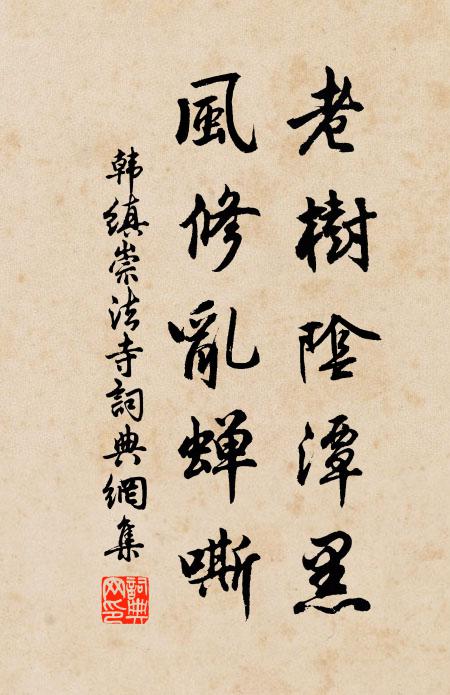 老樹陰潭黑
風修亂蝉嘶
韩縝崇法寺詞典網集
詞典
网印